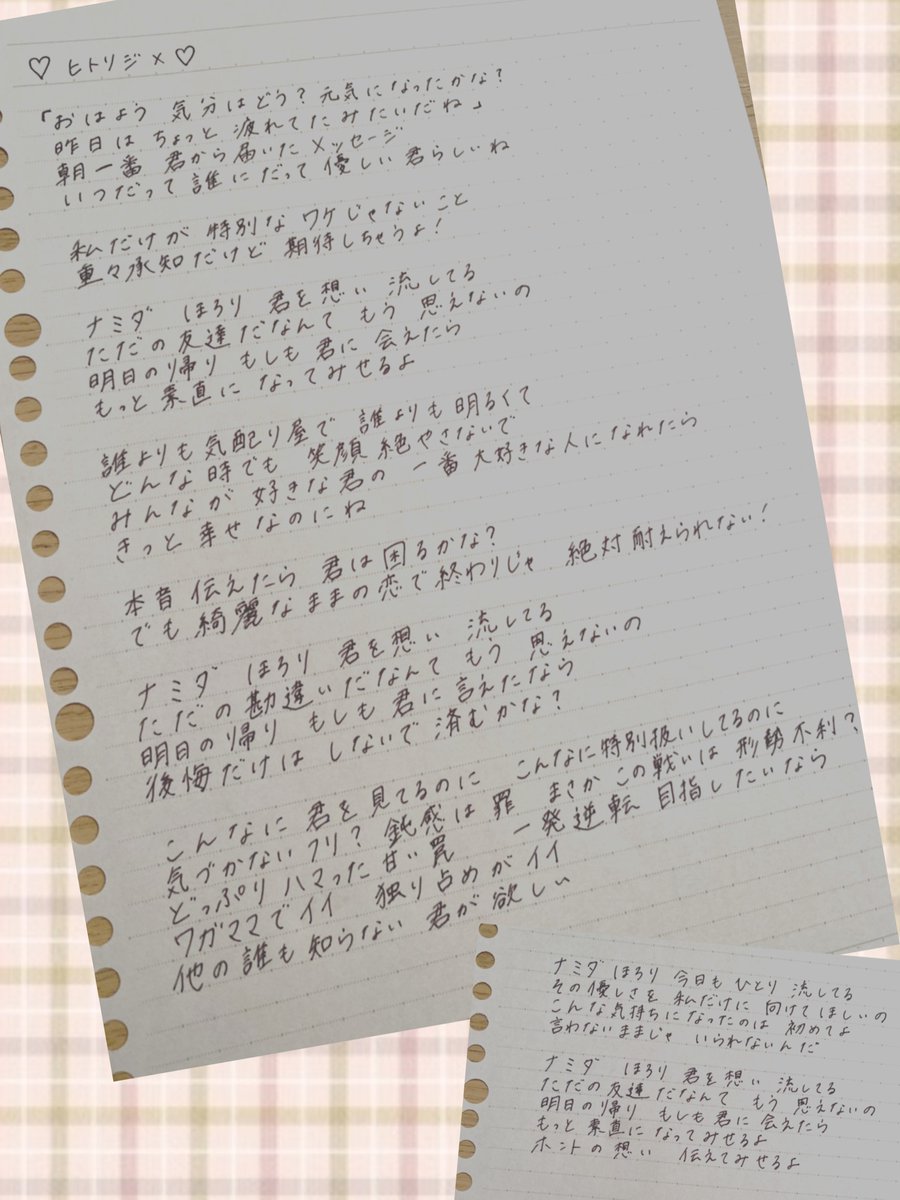 ♡ ヒトリジメ ♡
「おはよう 気分はどう？元気になったかな？
昨日は ちょっと 疲れてたみたいだね」
朝一番 君から届いたメッセージ
いつだって 誰にだって 優しい君らしいね
私だけが 特別な ワケじゃないこと
重々承知だけど 期待しちゃうよ！
ナミダ ほろり 君を想い 流してる
ただの友達だなんて もう 思えないの
明日の帰り もしも 君に 会えたら
もっと 素直に なってみせるよ
誰よりも気配り屋で 誰よりも明るくて
どんな時でも 笑顔絶やさないで
みんなが 好きな君の 一番大好きな人になれたら
きっと 幸せなのにね
本音 伝えたら 君は困るかな？
でも 綺麗なままの恋で終わりじゃ 絶対耐えられない！
ナミダ ほろり 君を想い 流してる
ただの勘違いだなんて もう 思えないの
明日の帰り もしも 君に言えたなら
後悔だけは しないで 済むかな？
こんなに 君を見てるのに こんなに特別扱いしてるのに
気づかないフリ？鈍感は罪 まさか この戦いは 形勢不利？
どっぷり ハマった 甘い罠 一発逆転 目指したいなら
ワガママでイイ 独り占めがイイ
他の誰も知らない 君が欲しい
ナミダ ほろり 今日も ひとり 流してる
その優しさを 私だけに 向けてほしいの
こんな気持ちになったのは 初めてよ
言わないままじゃ いられないんだ
ナミダ ほろり 君を想い 流してる
ただの友達だなんて もう 思えないの
明日の帰り もしも君に 会えたら
もっと 素直に なってみせるよ
ホントの想い 伝えてみせるよ